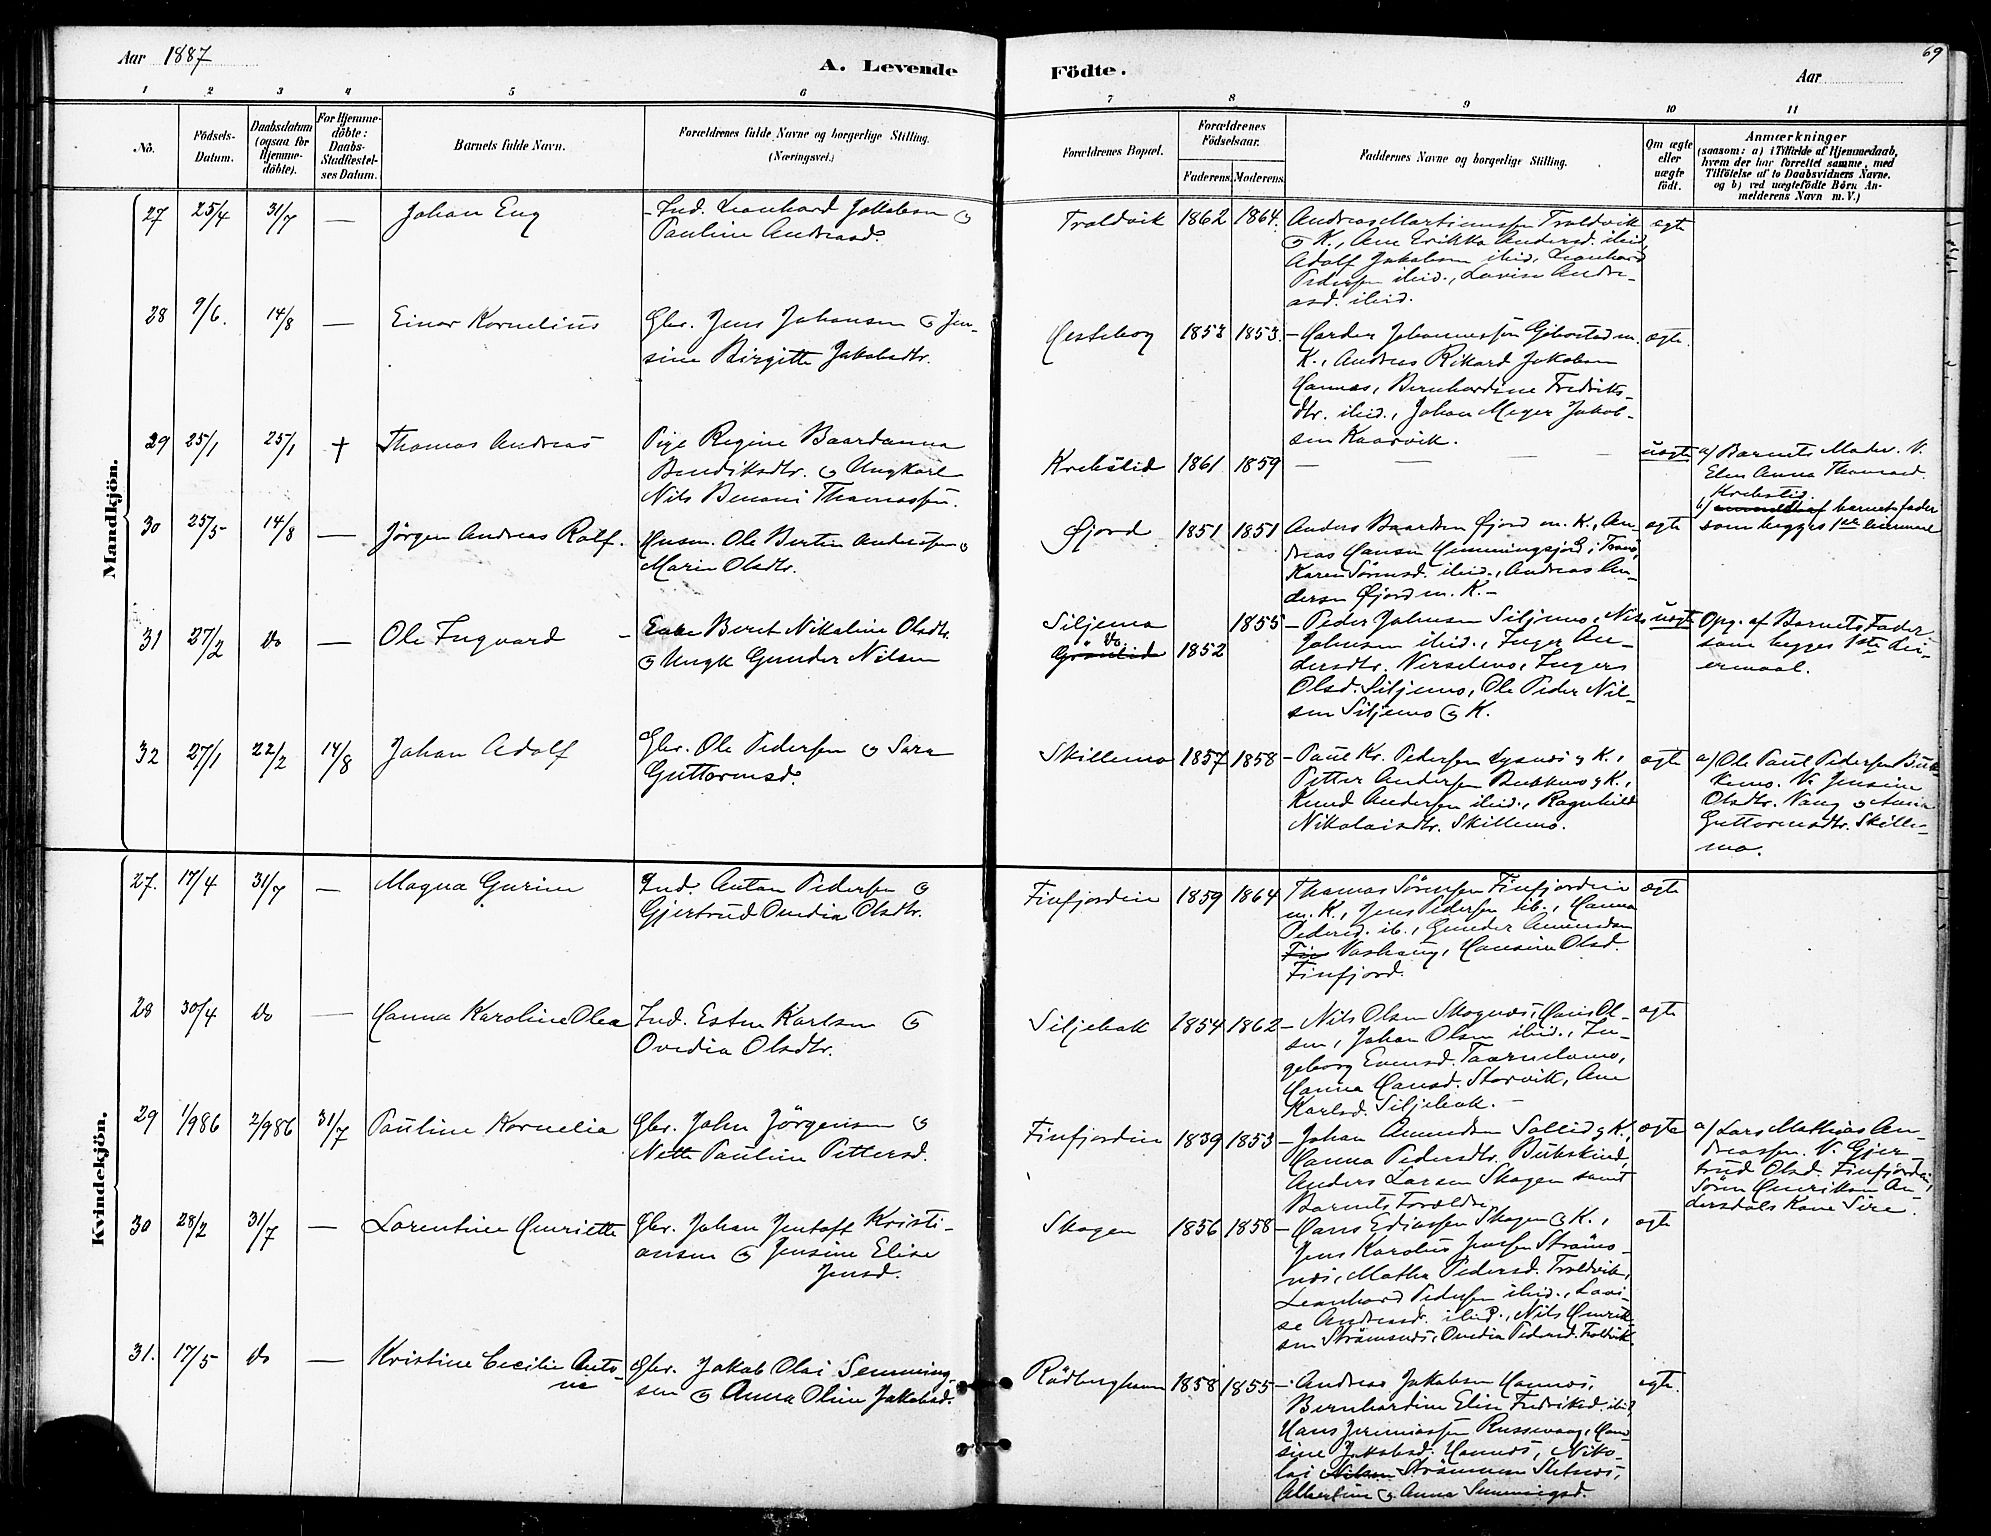 Aar 1887
A. Levende
Födte.
Aar
69
1 2 3 4 5 6 7 8 9 10 11
No.
Födsels-
Datum.
Daabsdatum
(ogsaa for
Hjemme-
döbte).
For Hjemme-
döbte:
Daabs-
Stadfæstel-
ses Datum.
Barnets fulde Navn.
Forældrenes fulde Navne og borgerlige Stilling.
(Næringsvei.)
Forældrenes Bopæl.
Forældrenes
Födselsaar.
Faderens. Moderens.
Faddernes Navne og borgerlige Stilling.
Om ægte
eller
uægte
födt.
Anmærkninger
(saasom: a) i Tilfælde af Hjemmedaab,
hvem der har forrettet samme, med
Tilföielse af to Daabsvidners Navne,
og b) ved uægtefödte Börn An-
melderens Navn m. V.)
Mandkjön.
27 25/4 31/7 — Johan Eng
Ind. Leonhard Jakobsen og
Pauline Andreasd.
Troldvik 1862 1864.
Andreas Martinussen Troldvik
og K., Ane Erikka Andersd. ibid,
Adolf Jakobsen ibid, Leonhard
Pedersen ibid., Lovise Andre-
asd. ibid.
ægte
28 9/6. 14/8 — Einar Kornelius
Gbr. Jens Johansen og Jen-
sine Birgitte Jakobsdtr.
Hesteberg 1853 1853.
— Harder Johannessen Gibostad m.
K., Andreas Rikard Jakobsen
Hannes, Bernhardine Fredriks-
dtr. ibid., Johan Meyer Jakob-
sen Kaarvik.
ægte.
29 25/1 25/1 † Thomas Andreas
Pige Regine Baardanna
Bendiksdtr. og Ungkarl
Nils Benoni Thomassen.
Krekslid 1861 1859
— — — —
uægte
a) Barnets Moder. V.
Elen Anna Thomasd.
Krekslid.
b) barnets fader
som begges 1ste leiermaal
30 25/5 14/8 — Jörgen Andreas Rolf.
Husm. Ole Bertin Andersen og
Marie Olsdtr.
Øjord 1851 1851
Anders Baardsen Øjord m. K., An-
dreas Hansen Hemmingsjord i Tranö,
Karen Sörensd. ibid., Andreas An-
dersen Øjord m. K. —
ægte
31 27/2 do — Ole Ingvard
Enke Beret Nikoline Olsdtr.
og Ungk Gunder Nilsen
Siljemo
do
Grönlid 1852 1855
— Peder Johnsen Siljemo, Nils
Johnsen ibid., Inger An-
dersdtr. Nerselmo, Ingers
Olsd. Siljemo, Ole Peder Nil-
sen Siljemo og K.
uægte
Opg. af Barnets Fader
som begges 1ste lei-
ermaal.
32 27/1 22/2 14/8 Johan Adolf
Gbr. Ole Pedersen og Sara
Guttormsd.
Skillemo 1857 1858
— Paul Kr. Pedersen Lysnes og K.,
Petter Andersen Bukkmo og K.,
Knud Andersen ibid., Ragnhild
Nikolaisdtr. Skillemo.
ægte
a) Ole Paul Pedersen Buk-
kmo. V. Jensine
Olsdtr. Vang og Anna
Guttormsdtr. Skille-
mo.
Kvindekjön.
27. 17/4 31/7 — Magna Gurine
Ind. Anton Pedersen og
Gjertrud Ovedia Olsdtr.
Finfjorden 1859 1864
Thomas Sörensen Finfjorden
m. K., Jens Pedersen ib., Hanna
Pedersd. ib., Gunder Amundsen
Fin Vashaug, Hansine Olsd.
Finfjord.
ægte
28 30/4 do — Hanna Karoline Olea
Ind. Esten Karlsen og
Ovedia Olsdtr.
Siljebak 1854 1862
— Nils Olsen Skognes, Hans Ol-
sen, Johan Olsen ibid., In-
geborg Evensd. Taarnelvmo,
Hanna Hansd. Storvik, Ane
Karlsd. Siljebak. —
ægte
29 1/9 86 2/9 86 31/7 Pauline Kornelia
Gbr. John Jörgensen og
Nette Pauline Pettersd.
Finfjorden 1839 1853
— Johan Amundsen Sollid og K.,
Hanna Pedersdtr. Bukskind,
Anders Larsen Skogen samt
Barnets Forældre
ægte
a) Lars Mathias An-
dreassen. V. Gjer-
trud Olsd. Finfjorden,
Sören Henriksen An-
dersdals Kone Sire.
30 28/2 31/7 — Lorentine Henriette
Gbr. Johan Jentoft Kristi-
ansen og Jensine Elise
Jensd.
Skogen 1856 1858
— Hans Eliassen Skogen og K.,
Jens Karolus Jensen Ströms-
nes, Mathea Pedersd. Troldvik,
Leonhard Pedersen ibid., Lovi-
se Andreasd. ibid., Nils Henrik-
sen Strömsnes, Ovedia Pedersd. Troldvik.
ægte
31. 17/5 do — Kristine Cecilie Anto-
nie
Gbr. Jakob Olai Semming-
sen og Anna Oline Jakobsd.
Rödberghavn 1858 1855
— Andreas Jakobsen Hannes,
Bernhardine Elise Fredriksd. ibid,
Hans Jeremiassen Russevaag, Han-
sine Jakobsd. Hannes, Niko-
lai Nilsen Strömmen Sletnes,
Albertine og Anna Semmingsd.
ægte.